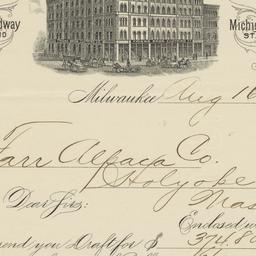 dway
Michig
ST.
Milwaukee Aug 16
Farr Alpaca Co.
Holyoke
Mas
Dear Sirs:
Enclosed w
end you Draft for $ 374.80